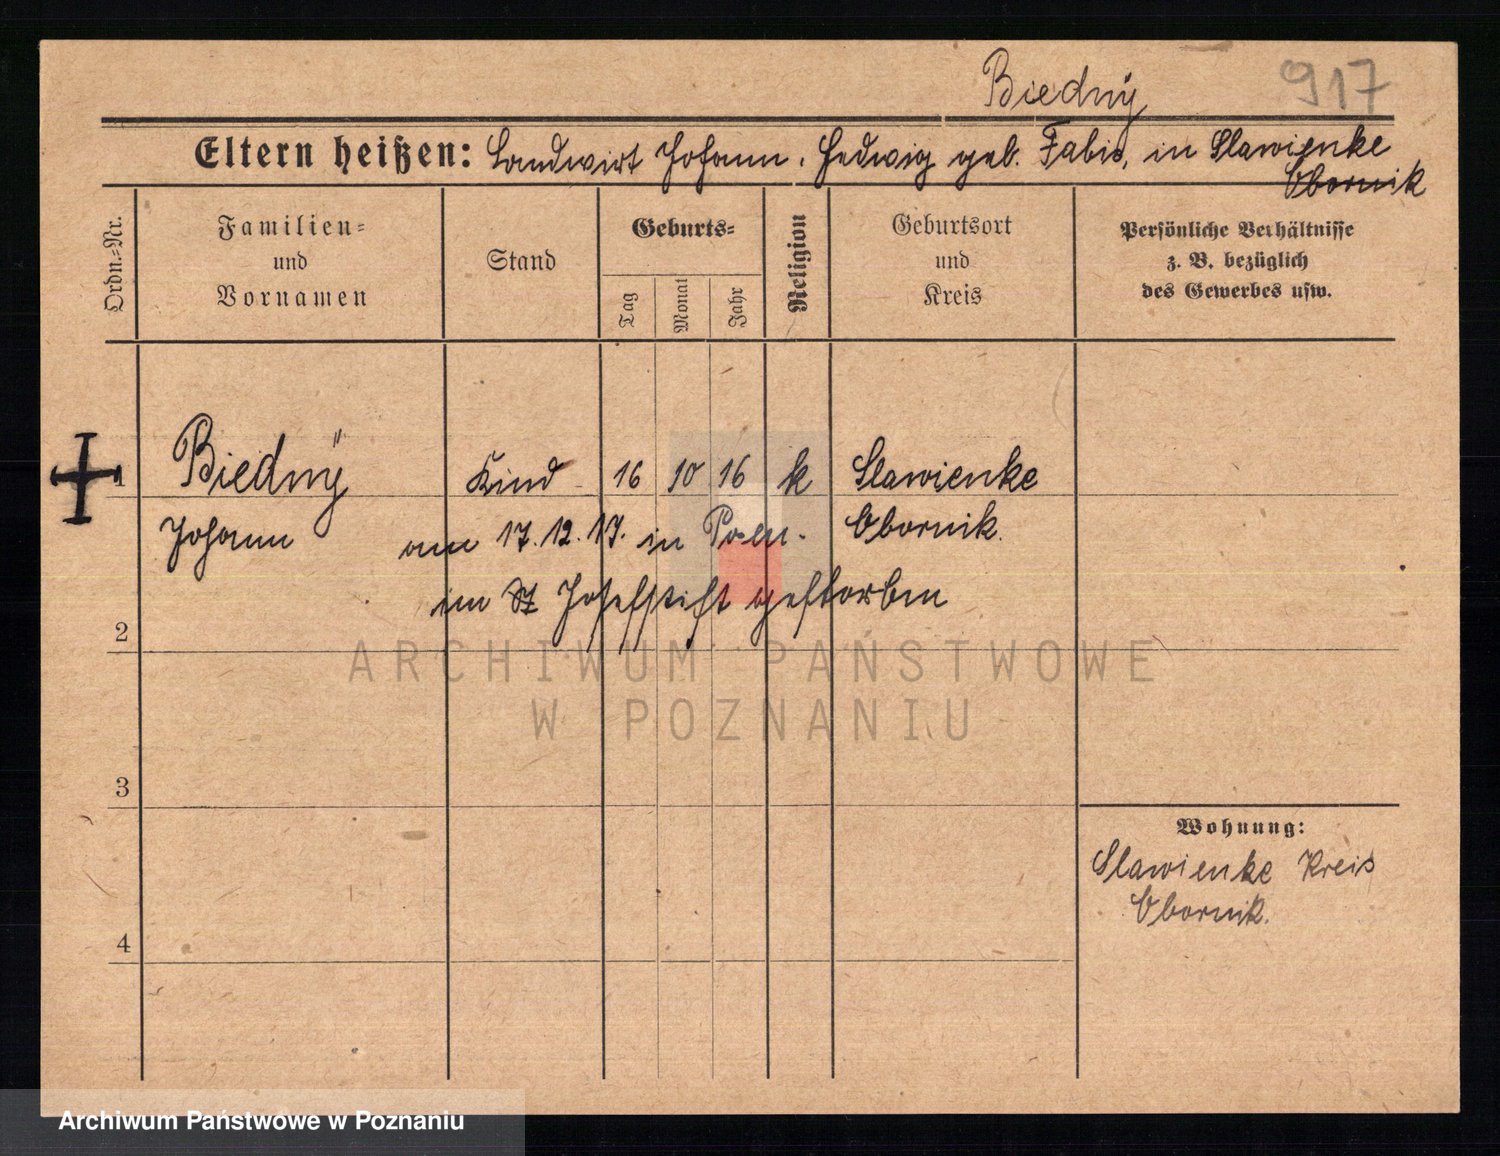 Biednÿ 917
Eltern heißen: Landwirt Johann, Hedwig geb. Fabis, in Slawienke
Obornik
Ordn.-Nr.
Familien- und Vornamen
Stand
Geburts-
Tag
Monat
Jahr
Religion
Geburtsort und Kreis
Persönliche Verhältnisse
z. B. bezüglich
des Gewerbes usw.
1 Biednÿ Kind 16 10 16 k Slawienke
Johann am 17.12.17. in Posen. Obornik.
im St Josefstift gestorben
2
ARCHIWUM PAŃSTWOWE
W POZNANIU
3
Wohnung:
Slawienke Kreis
Obornik.
4
Archiwum Państwowe w Poznaniu